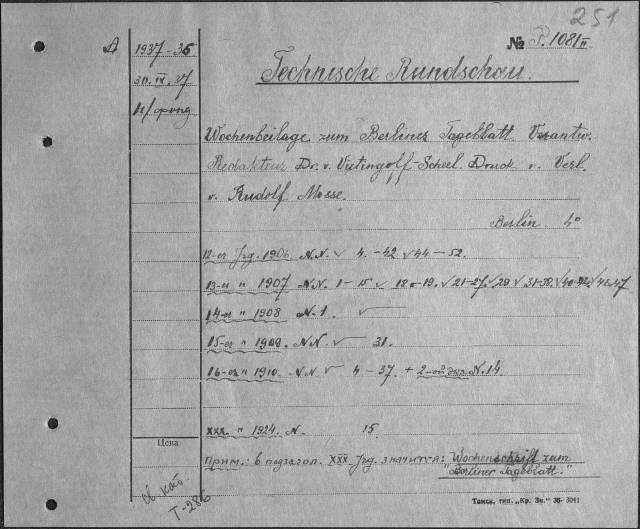 251
№ P. 1081/II
А 1937-36
30. IX. 47
И/фонд
Technische Rundschau.
Wochenbeilage zum Berliner Tageblatt. Verantw.
Redakteur Dr. v. Vietingoff-Scheel. Druck u. Verl.
v. Rudolf Mosse.
Berlin. 4°
12-er Jrg. 1906. N.N. √ 4 - 42 √ 44 - 52.
13-er " 1907 N.N. 1 - 15 √ 18 - 19. √ 21-27. √ 29 √ 31-38. √ 40-42. √ 46-47
14-er " 1908 N-1. √
15-er " 1909. N.N. √ 31.
16-er " 1910. N.N √ 4 - 37. + 2-ой экз. N. 14.
XXX. " 1924. N. 15.
Цена
Прим.: в подзагол. XXX Jrg. значится: Wochenschrift zum
"Berliner Tageblatt."
Т-286
Томск, тип. „Кр. Зн." 36- 3041